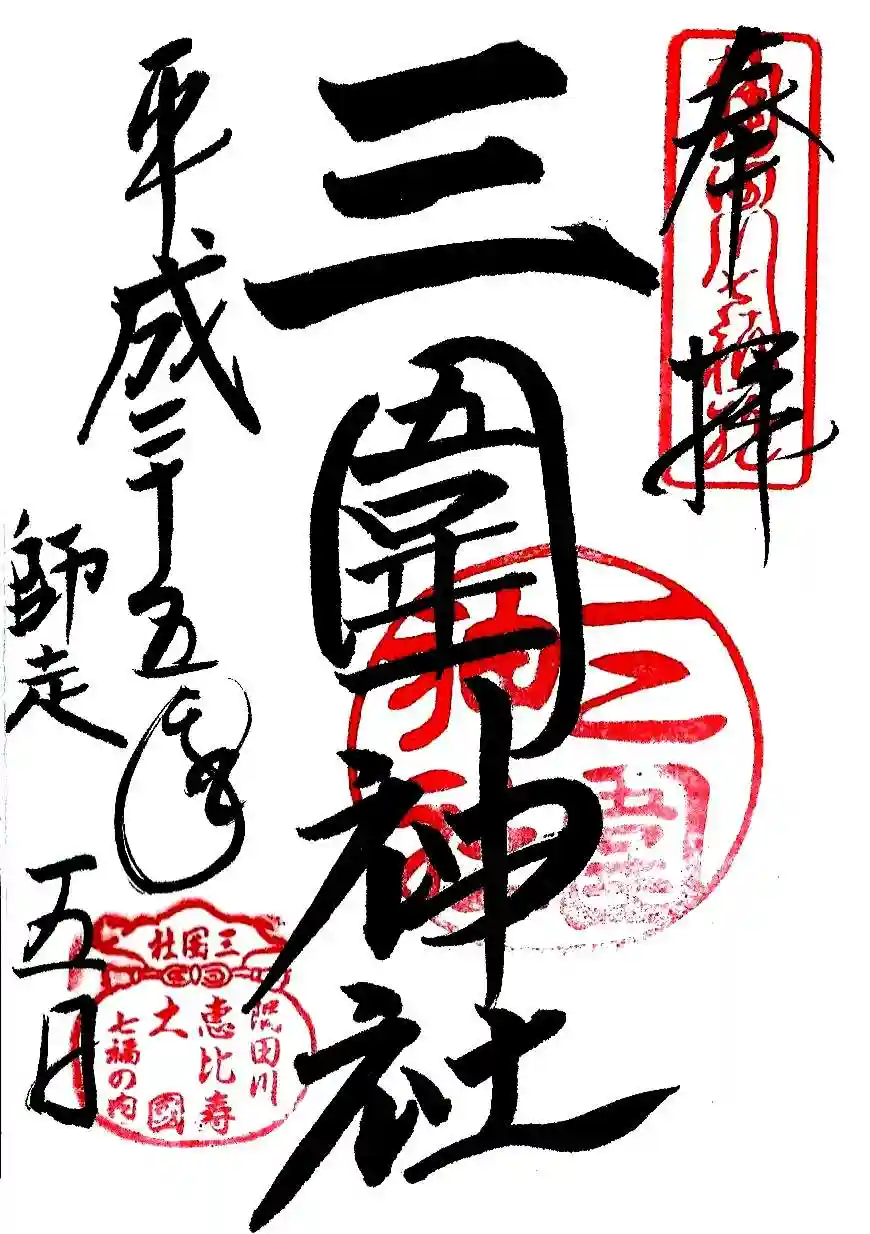 奉拝
隅田川七福神
三圍神社
三圍神社
平成二十五年
師走五日
三囲社
隅田川
恵比寿
大國
七福の内